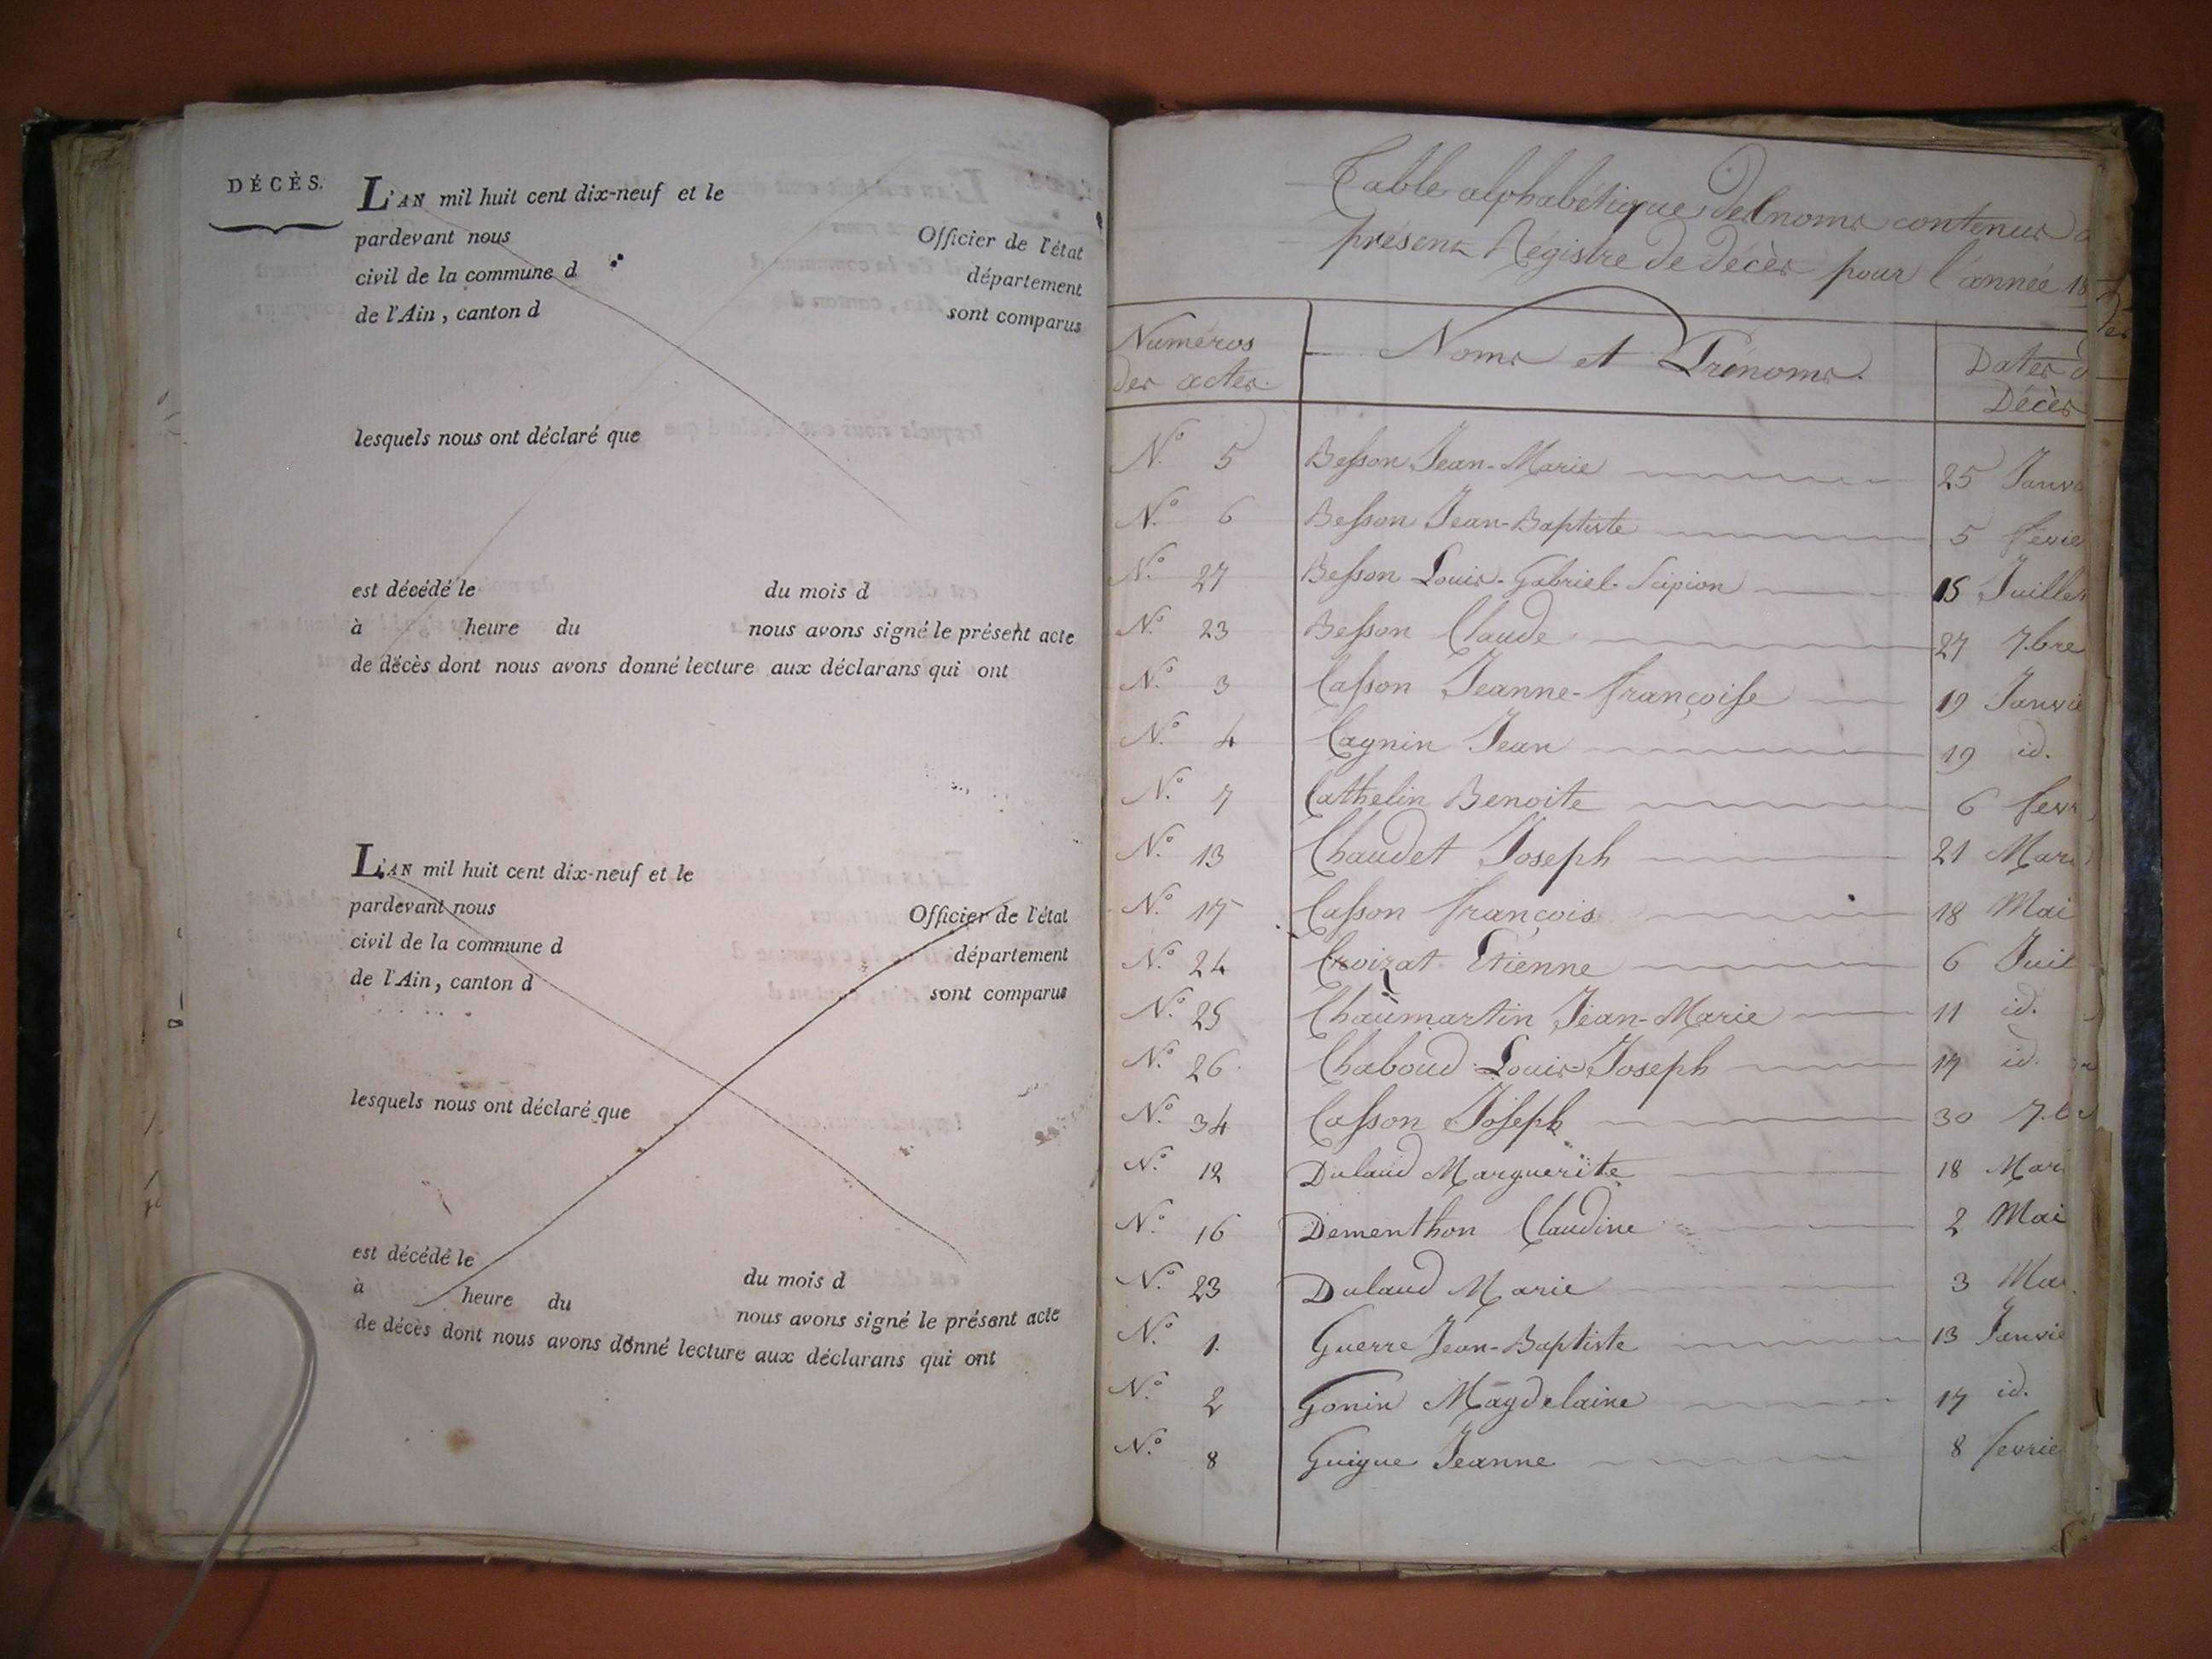 DÉCÈS.
L'AN mil huit cent dix-neuf et le
pardevant nous Officier de l'état
civil de la commune d département
de l'Ain, canton d sont comparus
lesquels nous ont déclaré que
est décédé le du mois d
à heure du nous avons signé le présent acte
de décès dont nous avons donné lecture aux déclarans qui ont
L'AN mil huit cent dix-neuf et le
pardevant nous Officier de l'état
civil de la commune d département
de l'Ain, canton d sont comparus
lesquels nous ont déclaré que
est décédé le du mois d
à heure du nous avons signé le présent acte
de décès dont nous avons donné lecture aux déclarans qui ont
Table alphabétique des noms contenus
présent Régistre de décès pour l'année 18
Numéros des actes. Noms et Prénoms. Dates d Décès
N.° 5 Besson Jean-Marie 25 Janvi
N.° 6 Besson Jean-Baptiste 5 fevrie
N.° 27 Besson Louis-Gabriel-Scipion 15 Juillet
N.° 23 Besson Claude 27 7.bre
N.° 3 Casson Jeanne-françoise 19 Janvie
N.° 4 Cagnin Jean 19 id.
N.° 7 Cathelin Benoite 6 fevr
N.° 13 Chaudet Joseph 21 Mars
N.° 17 Casson françois 18 Mai
N.° 24 Croizat Etienne 6 Juil
N.° 25 Chaumartin Jean-Marie 11 id.
N.° 26 Chaboud Louis Joseph 17 id.
N.° 34 Casson Joseph 30 7.b
N.° 12 Dulaud Marguerite 18 Mars
N.° 16 Dementhon Claudine 2 Mai
N.° 23 Dulaud Marie 3 Ma
N.° 1. Guerre Jean-Baptiste 13 Janvie
N.° 2 Gonin Magdelaine 17 id.
N.° 8 Guigue Jeanne 8 fevrie